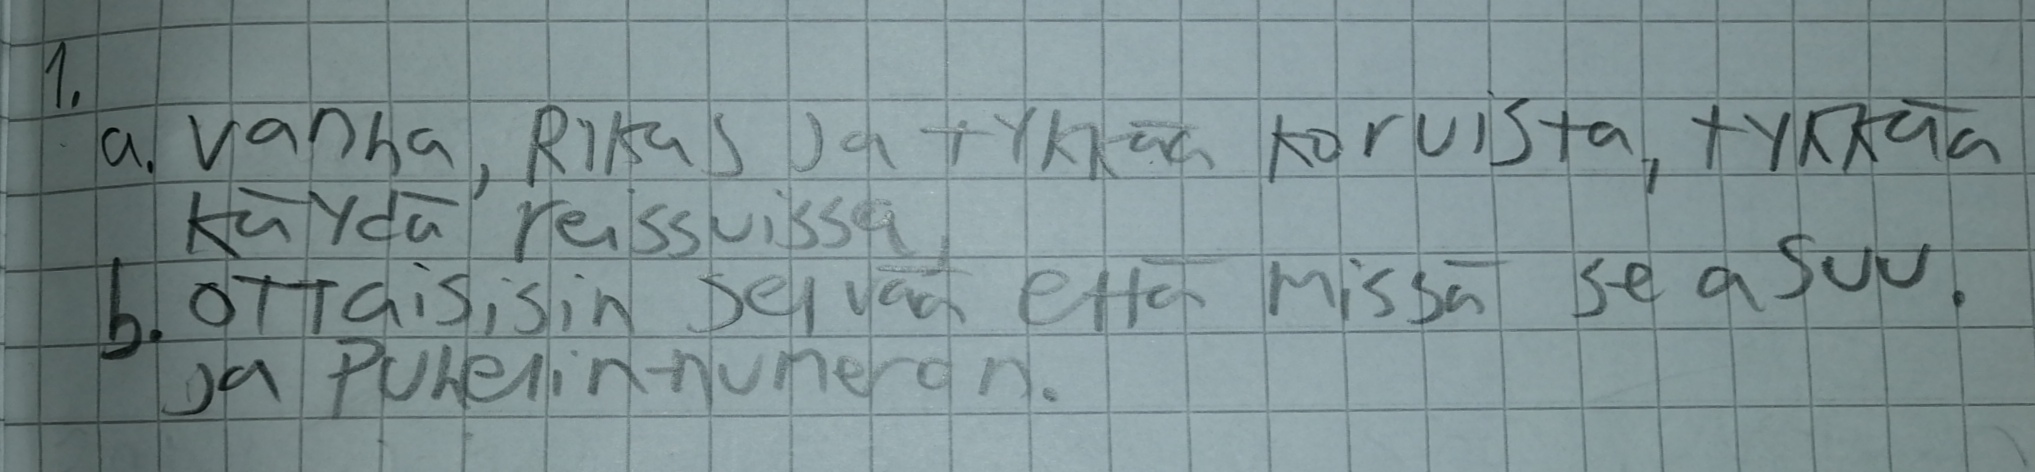 1.
a. vanha, Rikas ja tykkää koruista, tykkää
käydä reissuissa,
b. ottaisisin selvää että missä se asuu.
ja puhelin-numeron.